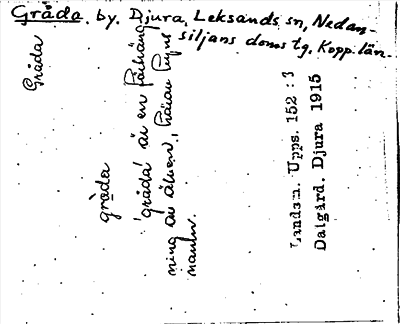 Gråda. by. Djura, Leksands sn, Nedan-
siljans doms tg. Kopp. län.
Gråda
gråda
'gråda' är en förhöj-
ning av älven, härav
namn.
Landsm. Upps. 152 : 3
Dalgård. Djura 1915